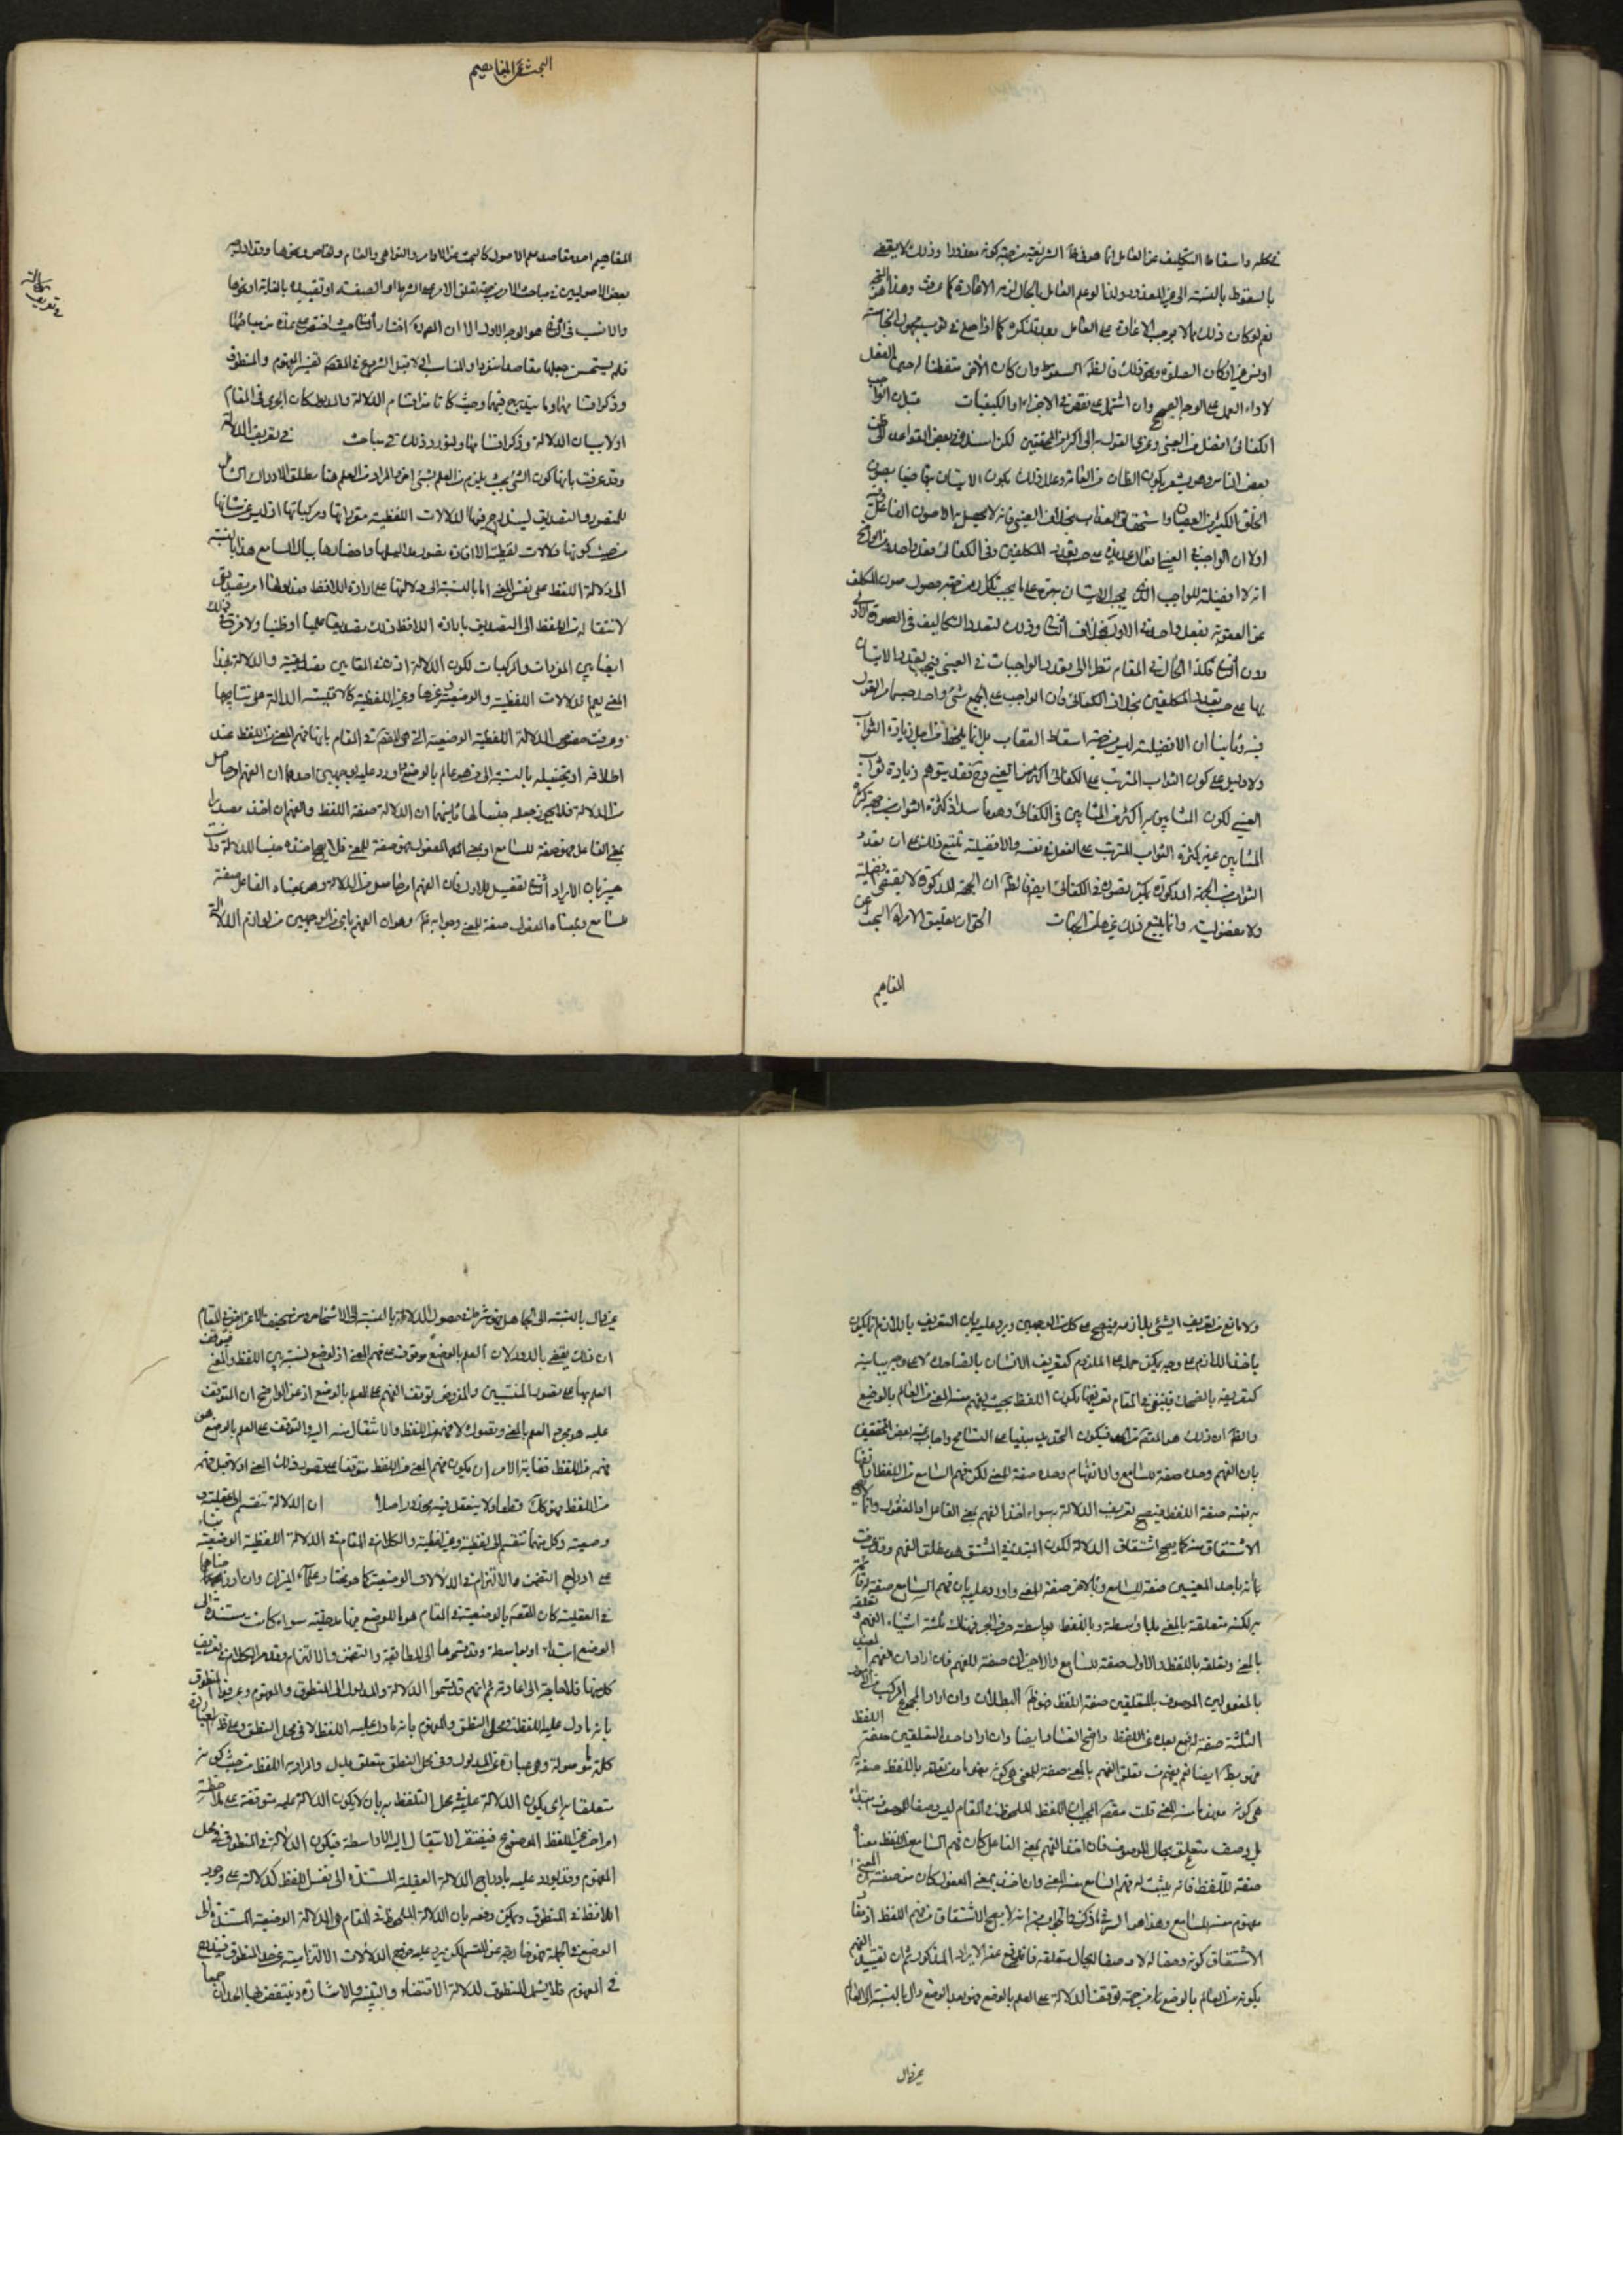 في محله واسقاط التكليف عن العامل انما هو في الشريعة من جهة كونه معذورا وذلك لا يقضي
بالسقوط بالنسبة الى غير المعذور ولذا لو علم العامل بالحال لزمه الاعادة كما عرفت وهذا
نعم لو كان ذلك مما لا يوجب الاعادة على العامل بعد تذكره كما اذا صلى في ثوب مجهول النجاسة
او نسي غير اركان الصلوة ونحو ذلك فالظ السقوط وان كان الاخر متفطنا له حين الفعل
لاداء العمل على الوجه الصحيح وان اشتمل على نقص في الاجزاء او الكيفيات قيل ان الواجب
الكفائي افضل من العيني وعزى القول به الى اكثر المحققين لكن اسنده في بعض القواعد الى ظن
بعض الناس وهو يشعر بكون الظان من العامة وعلل ذلك بكون الاتيان بها صيانة بصون
الخلق الكثير من العصيان واستحقاق العذاب بخلاف العيني فانه لا يحصل به الا صون الفاعل وفيه
اولا ان الواجب في العيني افعال عديدة على حسب تعدد المكلفين وفي الكفائي فعل واحد ومن الواضح
انه لا فضيلة للواجب الذي يجب الاتيان به مرة على ما يجب تكراره من جهة حصول صون المكلف
عن العقوبة بفعل واحد في الاول بخلاف الثاني وذلك لتعدد التكاليف في الصورة الاولى
دون الثاني فكذا الحال في المقام نظرا الى تعدد الواجبات في العيني فيجب تعدد الاتيان
بها على حسب تعدد المكلفين بخلاف الكفائي فان الواجب على الجميع شيء واحد حسبما مر القول
فيه وثانيا ان الافضلية ليس من جهة اسقاط العقاب بل انما يلحظ من اجل زيادة الثواب
ولا دليل على كون الثواب المترتب على الكفائي اكثر من العيني وقد يتوهم زيادة ثواب
العيني لكون المثابين به اكثر من المثابين في الكفائي وهو فاسد اذ كثرة الثواب من جهة كثرة
المثابين غير كثرة الثواب المترتب على الفعل في نفسه والافضلية تتبع ذلك على ان تعدد
الثواب من الجهة المذكورة يمكن تصوره في الكفائي ايض فالظ ان الجهة المذكورة لا يقتضي فضيلة
ولا مفضولية وانما يتبع ذلك غيرها من الجهات الحق ان تعليق الامر البحث عن
المفاهيم
البحث في المفاهيم
المفاهيم احد مقاصد علم الاصول كالبحث عن الاوامر والنواهي والعام والخاص ونحوها وقد ادرجه
بعض الاصوليين في مباحث الامر من جهة تعلق الامر على الشرط او الصفة او تقييده بالغاية او نحوها
والانسب في الوضع هو الوجه الاول الا ان المصه اختار الثاني حيث اقتصر على عمدة من مباحثها
فلم يستحسن جعلها مقصدا منفردا والمناسب اولا قبل الشروع في المقصد تفسير المفهوم والمنطوق
وذكر اقسامهما وما يندرج فيهما وحيث كانا من اقسام الدلالة والمدلول كان الحري في المقام
اولا بيان الدلالة وذكر اقسامها ولنورد ذلك في مباحث في تعريف الدلالة
في تعريف الدلالة
وقد عرفت بانها كون الشيء بحيث يلزم من العلم به العلم بشيء اخر والمراد من العلم هنا مطلق الادراك الشامل
للتصور والتصديق ليندرج فيها الدلالات اللفظية مفرداتها ومركباتها اذ ليس من شانها
من حيث كونها دلالات لفظية الا افادة تصور مدلولها واحضارها ببال السامع هذا بالنسبة
الى دلالة اللفظ على نفس المعنى اما بالنسبة الى دلالتها على ارادة اللافظ فمدلولها امر تصديقي
لانتقاله من اللفظ الى التصديق بارادة اللافظ ذلك تصديقا علميا او ظنيا ولا فرق في ذلك
ايضا بين المفردات والمركبات لكون الدلالة اذن في المقامين تصديقية والدلالة بهذا
المعنى يعم الدلالات اللفظية والوضعية وغيرها وغير اللفظية كالاقيسة الدالة على نتايجها
وعرفت خصوص الدلالة اللفظية الوضعية التي هي المقصودة في المقام بانها فهم المعنى من اللفظ عند
اطلاقه او تخييله بالنسبة الى من هو عالم بالوضع واورد عليه بوجهين احدهما ان الفهم امر حاصل
من الدلالة فلا يجوز جعله جنسا لها ثانيهما ان الدلالة صفة اللفظ والفهم ان اخذ مصدرا
بمعنى الفاعل فهو صفة للسامع او بمعنى المفعول فهو صفة للمعنى فلا يصح اخذه جنسا للدلالة وانت
خبير بان الايراد الثاني تفصيل للاول فان الفهم امر حاصل من الدلالة وهو بمعناه الفاعل صفة
للسامع وبمعناه المفعول صفة للمعنى وجوابه ظ وهو ان الفهم باي من الوجهين من لوازم الدلالة
ولا مانع من تعريف الشيء بلازمه فيصح على كل من الوجهين ويرد عليه بان التعريف باللازم انما يكون
باخذ اللازم على وجه يمكن حمله على الملزوم كتعريف الانسان بالضاحك لا على وجه يباينه
كتعريفه بالضحك فينبغي في المقام تعريفها بكون اللفظ بحيث يفهم منه المعنى من العالم بالوضع
والظ ان ذلك هو المقصود من الحد فيكون التحديد مبنيا على التسامح واجاب عنه بعض المحققين
بان الفهم وحده صفة للسامع والانفهام وحده صفة للمعنى لكن فهم السامع من اللفظ وانفهام
به نفسه صفة اللفظ فيصح تعريف الدلالة به سواء اخذ الفهم بمعنى الفاعل او المفعول
الاشتقاق منه كما يصح اشتقاق الدلالة لكون المبدء في المشتق هو مطلق الفهم وقد عرفت
بانه باحد المعنيين صفة للسامع وبالاخر صفة للمعنى واورد عليه بان فهم السامع صفة له قائمة
به لكنه متعلقة بالمعنى بلا واسطة وباللفظ بواسطة حرف الجر فهناك ثلثة اشياء الفهم وتعلقه
بالمعنى وتعلقه باللفظ والاول صفة للسامع والاخيران صفة للفهم فان اراد ان الفهم
بالمفعولين الموصوف بالمتعلقين صفة اللفظ فهو ظ البطلان وان اراد المجموع المركب من الامور
الثلثة صفة له فمع بعده عن اللفظ واضح الفساد ايضا وان اراد احد المتعلقين صفة اللفظ
فهو باطل ايضا نعم يفهم من تعلق الفهم بالمعنى صفة للمعنى هي كونه مفهوما ومن تعلقه باللفظ صفة
هي كونه مفهوما منه المعنى قلت مقصود المجيب ان اللفظ الملحوظ في المقام ليس وصفا للموصوف ابتداء
بل وصف متعلق بحال الموصوف فان اخذ الفهم بمعنى الفاعل كان فهم السامع من اللفظ معناه
صفة للفظ فانه يثبت له فهم السامع منه المعنى وان اخذ بمعنى المفعول كان من صفته ان المعنى
مفهوم منه للسامع وهذا هو السر فيما ذكر في الجواب من انه لا يصح الاشتقاق من فهم اللفظ اذ مفاد
الاشتقاق كونه وصفا له لا وصفا بحال متعلقه فاندفع عنه الايراد المذكور ثم ان تقييد الفهم
بكونه من العالم بالوضع ناش من جهة توقف الدلالة على العلم بالوضع فهو بعد الوضع دال بالنسبة الى العالم
غير دال
غير دال بالنسبة الى الجاهل فهو شرط في حصول الدلالة بالنسبة الى الاشخاص ومن سخيف الاعتراض في المقام
ان ذلك يقضي بالدور لان العلم بالوضع موقوف على فهم المعنى اذ الوضع نسبة بين اللفظ والمعنى فيتوقف
العلم بها على تصور المنتسبين والمفروض توقف الفهم على العلم بالوضع اذ من الواضح ان المتوقف
عليه هو مجرد العلم بالمعنى وتصوره لا فهمه من اللفظ والانتقال منه اليه والمتوقف على العلم بالوضع هو
فهمه من اللفظ فغاية الامر ان يكون فهم المعنى من اللفظ متوقفا على تصور ذلك المعنى اولا قبل فهمه
من اللفظ وهو كك قطعا ولا يتعقل فيه محذور اصلا ان الدلالة تنقسم الى عقلية و
وضعية وكل منهما تنقسم الى لفظية وغير لفظية والكلام في المقام في الدلالة اللفظية الوضعية بناء
على ادراج التضمن والالتزام في الدلالات الوضعية كما هو مختار علماء الميزان وان ادرجهما
في العقلية كان المقصود بالوضعية في المقام هو ما للوضع فيها مدخلية سواء كانت مستندة الى
الوضع ابتداء او بواسطة وقسموها الى المطابقة والتضمن والالتزام وقد مر الكلام في تعريف
كل منها فلا حاجة الى اعادته ثم انهم قد قسموا الدلالة والمدلول الى المنطوق والمفهوم وعرفوا المنطوق
بانه ما دل عليه اللفظ في محل النطق والمفهوم بانه ما دل عليه اللفظ لا في محل النطق وظ العبارة
كلمة ما موصولة وهي عبارة عن المدلول وفي محل النطق متعلق بدل والمراد به اللفظ من حيث كونه
متعلقا به اي يكون الدلالة عليه في محل التلفظ به بان لا يكون الدلالة عليه متوقفة على ملاحظة
امر اخر غير اللفظ الموضوع فيفتقر الانتقال اليه الى واسطة فيكون الدلالة في المنطوق في محل
المفهوم وقد يورد عليه بادراج الدلالة العقلية المستندة الى نفس اللفظ كدلالته على وجود
اللافظ في المنطوق ويمكن دفعه بان الدلالة الملحوظة في المقام هي الدلالة الوضعية المستندة الى
الوضع في الجملة فهو خارج عن المقسم لكن يرد عليه خروج الدلالات الالتزامية عن حد المنطوق فيندرج
في المفهوم فلا يشمل المنطوق لدلالة الاقتضاء والتنبيه والاشارة فينتقض بها الحدان جميعا